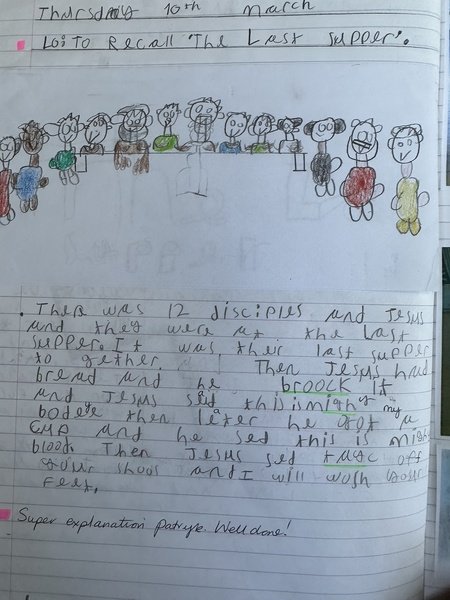 Thursday 10th March
LO: To Recall 'The Last Supper'.
. Ther was 12 disciples and Jesus
and they were at the Last
supper. It was their last supper
to gether. Then Jesus had
bread and he broock it
and Jesus sed this is migh my
bodee then later he got a
cup and he sed this is migh
blood. Then Jesus sed tayc off
your shoos and I will wosh your
feet.
Super explanation Patryk. Well done!